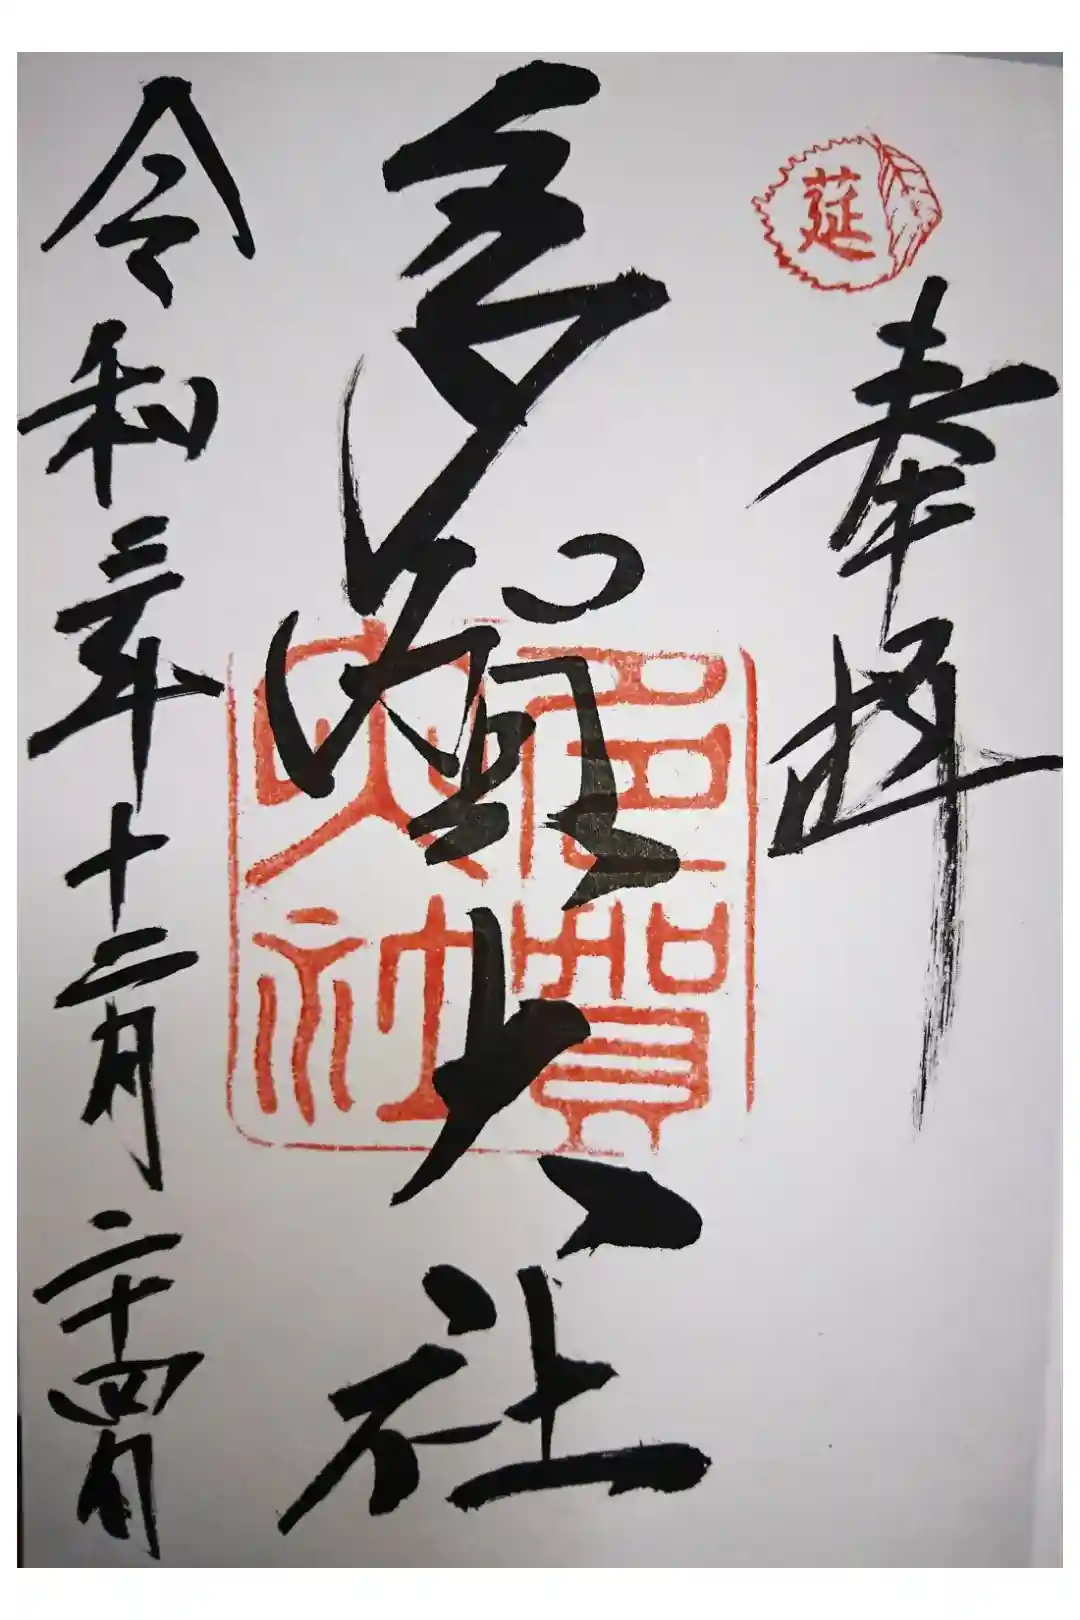 莚
奉拝
多賀大社
多賀
大社
令和三年十二月二十四日